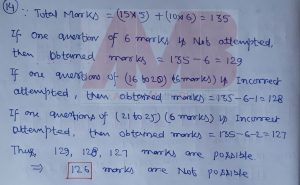 (14) ∵ Total Marks = (15×5) + (10×6) = 135
If one question of 6 marks is Not attempted,
then obtained marks = 135-6 = 129
If one questions of (16 to 20) (6 marks) is Incorrect
attempted, then obtained marks = 135-6-1 = 128
If one questions of (21 to 25) (6 marks) is Incorrect
attempted, then obtained marks = 135-6-2 = 127
Thus, 129, 128, 127 marks are possible.
⇒ 126 marks are Not possible